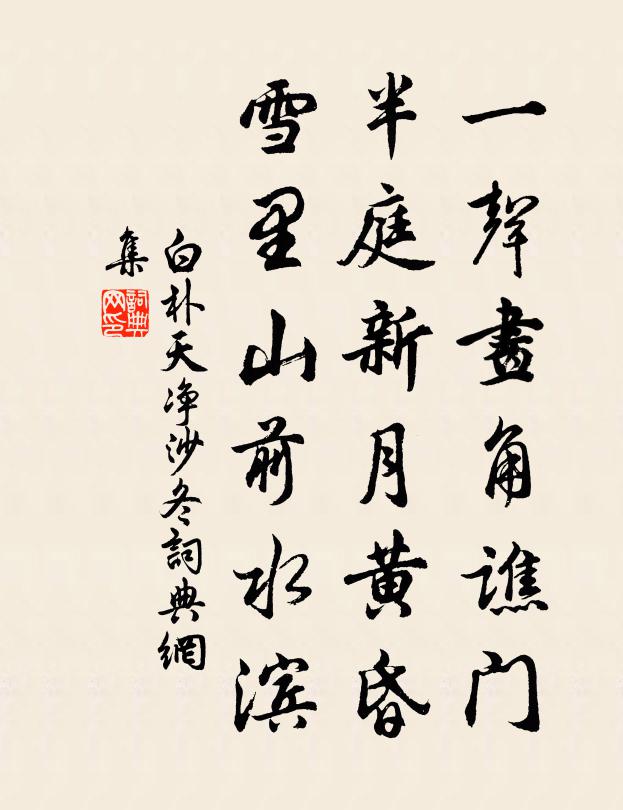 一聲畫角譙门
半庭新月黄昏
雪里山前水滨
白朴天净沙冬詞典網
集
詞典
网印